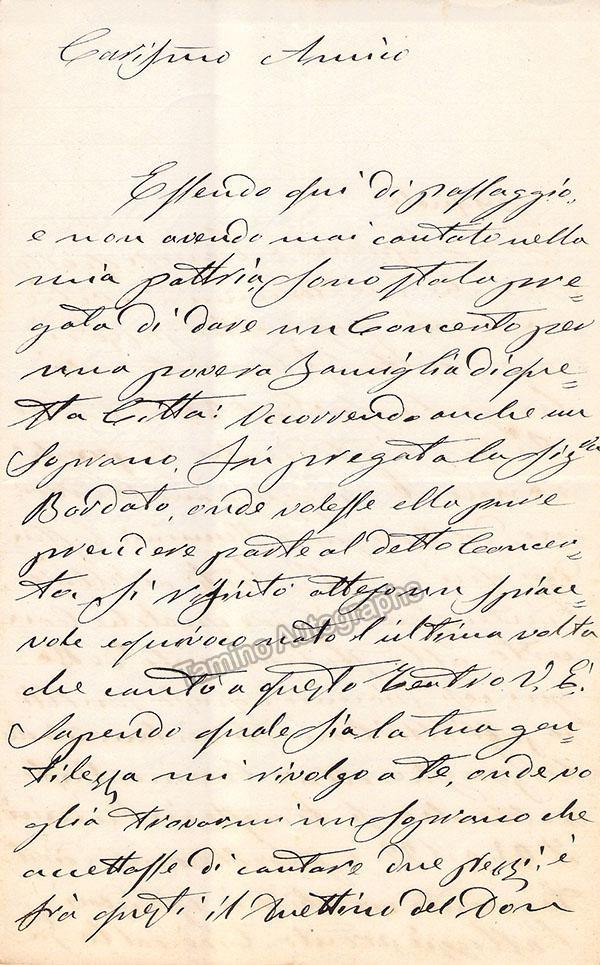 Carissimo Amico
Essendo qui di passaggio,
e non avendo mai cantato nella
mia pattria, sono stata pre=
gata di dare un Concento per
una povera Famiglia di que=
sta Città: Occorrendo anche un
Soprano, fu pregata la Sig.ra
Bordato, onde volesse ella pure
prendere parte al detto Concer=
to, si rifiutò atteso un spiace=
vole equivoco nato l'ultima volta
che cantò a questo Teatro V. E.
Sapendo quale sia la tua gen=
tilezza mi rivolgo a te, onde vo
glia trovarmi un Soprano che
accettasse di cantare due pezzi, e
frà questi il Duettino del Don
Tamino Autographs